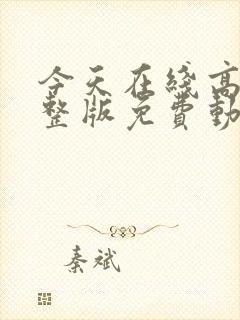 今天在綫高
整版免費動
秦斌